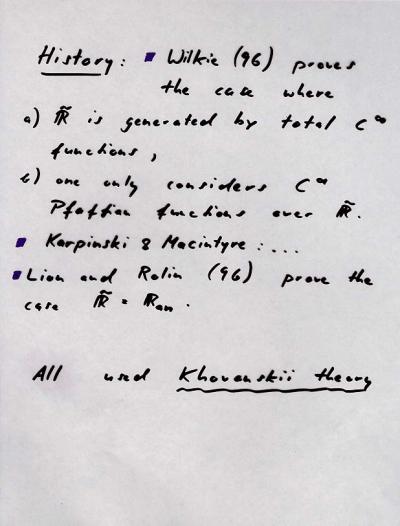 History: ▪ Wilkie (96) proves
the case where
a) ℝ̃ is generated by total C^∞
functions,
b) one only considers C^∞
Pfaffian functions over ℝ̃.
▪ Karpinski & Macintyre : ...
▪ Lion and Rolin (96) prove the
case ℝ̃ = ℝ_an.
All used Khovanskii theory